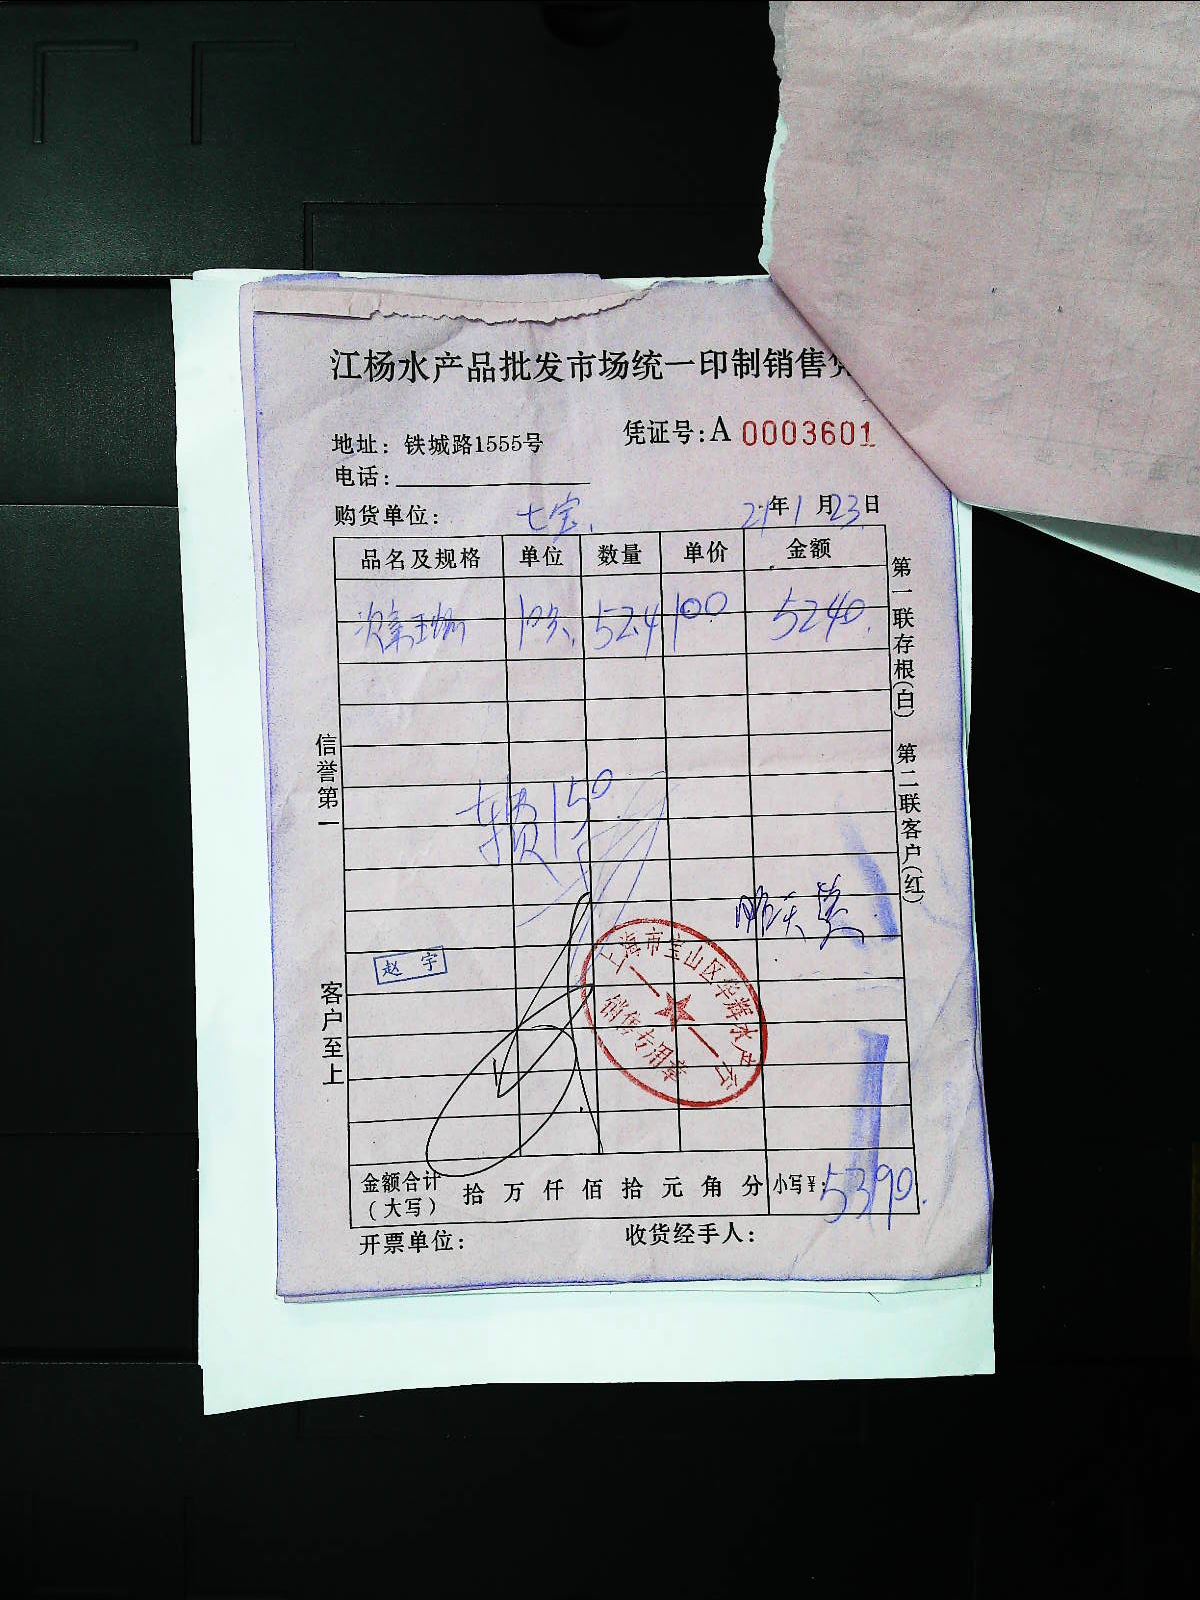 江杨水产品批发市场统一印制销售
凭证号:A 0003601
地址: 铁城路1555号
电话:
购货单位: 七宝. 21年1月23日
品名及规格 单位 数量 单价 金额
52.4 100 5240.
150
第一联存根(白) 第二联客户(红)
信誉第一
客户至上
赵宇
上海市宝山区华辉水产
销售专用章
金额合计(大写) 拾 万 仟 佰 拾 元 角 分 小写¥: 5390.
开票单位: 收货经手人: